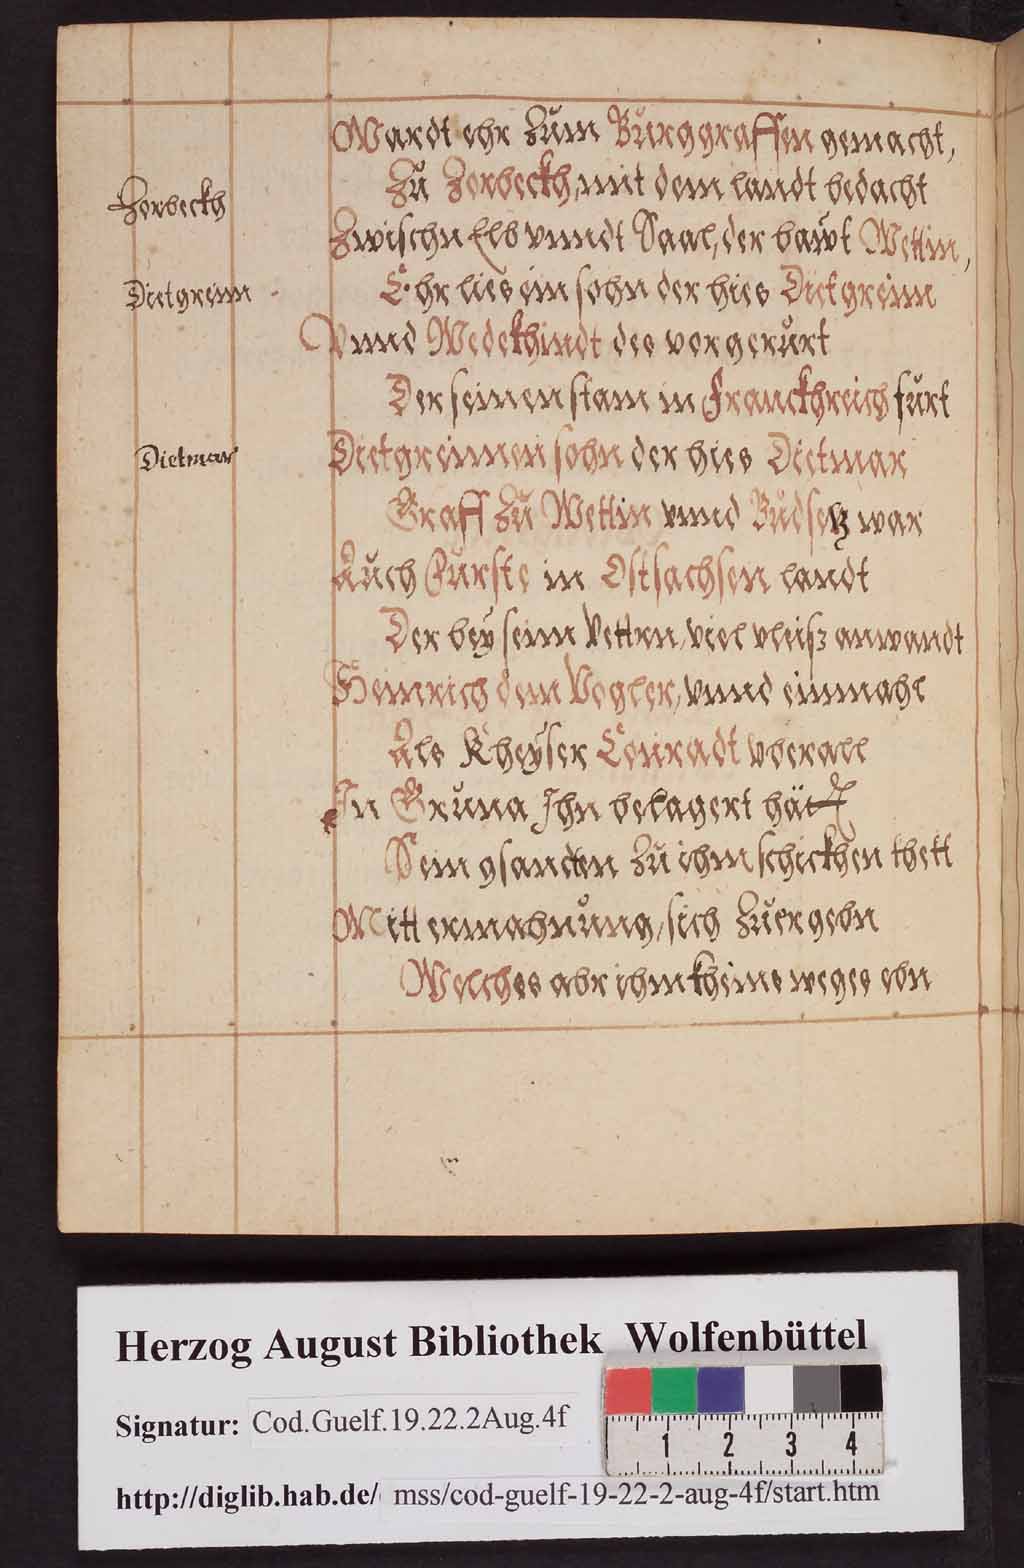 Wardt ehr zum Burggraffen gemacht,
Zu Zorbeckh, mit dem landt bedacht
Zorbeckh
Zwischn Elb vnndt Saal, der bawt Wettin,
Dietgreinn
Ehr lies ein sohn der hies Dietgrein
Vnnd Wedekhindt des vorgerurt
Der seinen stam in Franckhreich furt
Dietmar
Dietgreinnen sohn der hies Dietmar
Graff zu Wettin vnnd Budsetz war
Auch Furste in Ostsachsen landt
Der bey seim Vettrn, viel vleisz anwandt
Heinrich dem Vogler, vnnd einmahl
Als Kheyser Conradt vberall
In Gruna Ihn belagert hätt
Sein gsandten zu ihm schickhen thett
Mitt ermahnung, sich zuergebn
Welches abr ihm kheins weges ebn
Herzog August Bibliothek Wolfenbüttel
Signatur: Cod.Guelf.19.22.2Aug.4f
1 2 3 4
http://diglib.hab.de/ mss/cod-guelf-19-22-2-aug-4f/start.htm